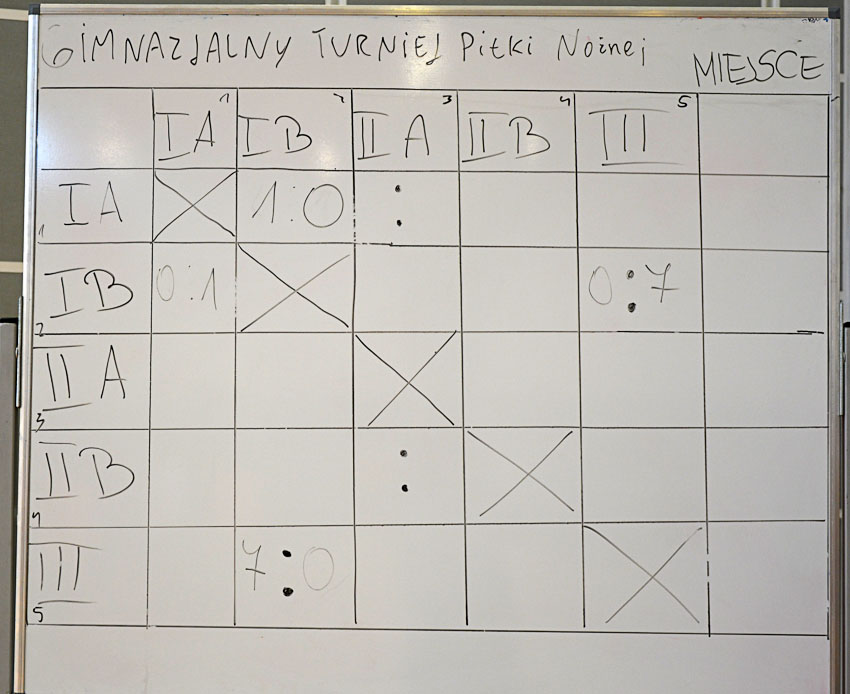 GIMNAZJALNY TURNIEJ Piłki Nożnej
MIEJSCE
1 2 3 4 5
IA IB II A II B III
1 IA 1:0 :
2 IB 0:1 0:7
3 II A
4 II B :
5 III 7:0